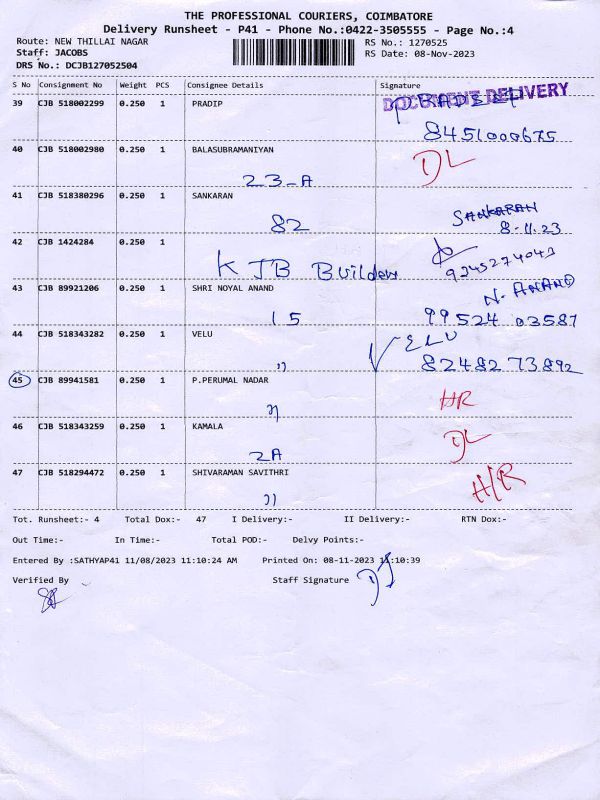 THE PROFESSIONAL COURIERS, COIMBATORE
Delivery Runsheet - P41 - Phone No.:0422-3505555 - Page No.:4
Route: NEW THILLAI NAGAR RS No.: 1270525
Staff: JACOBS RS Date: 08-Nov-2023
DRS No.: DCJB127052504
S No Consignment No Weight PCS Consignee Details Signature
DOCUMENT DELIVERY
39 CJB 518002299 0.250 1 PRADIP PRADEEP
8451000675
40 CJB 518002980 0.250 1 BALASUBRAMANIYAN DL
23-A
41 CJB 518380296 0.250 1 SANKARAN SANKARAN
82 8-11.23
42 CJB 1424284 0.250 1
KJB Builders 9245274043
43 CJB 89921206 0.250 1 SHRI NOYAL ANAND N. ANAND
15 99524 03587
44 CJB 518343282 0.250 1 VELU VELU
" 82482 73892
45 CJB 89941581 0.250 1 P.PERUMAL NADAR HR
"
46 CJB 518343259 0.250 1 KAMALA DL
2A
47 CJB 518294472 0.250 1 SHIVARAMAN SAVITHRI H/R
"
Tot. Runsheet:- 4 Total Dox:- 47 I Delivery:- II Delivery:- RTN Dox:-
Out Time:- In Time:- Total POD:- Delvy Points:-
Entered By :SATHYAP41 11/08/2023 11:10:24 AM Printed On: 08-11-2023 11:10:39
Verified By Staff Signature